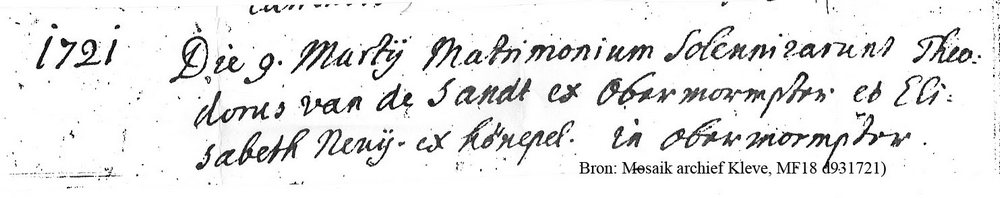 1721
Die 9. Martij Matrimonium Solennizarunt Theo:
dorus van de Sandt ex Obermormpter et Eli:
sabeth Neuij. ex hönepel. in obermormpter.
Bron: Mosaik archief Kleve, MF18 d931721)